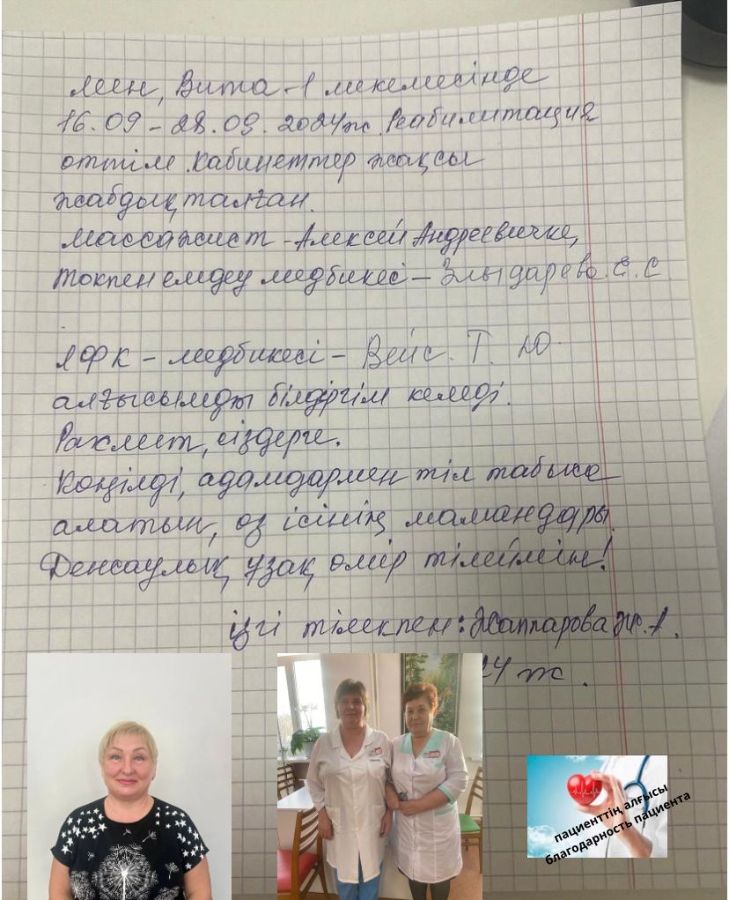 Мен, Вита-1 мекемесінде
16.09 – 28.09. 2024ж. Реабилитация
өттім. Кабинеттер жақсы
жабдықталған.
Массажист - Алексей Андреевичке,
токпен емдеу медбикесі – Злыдарева. С. С
ЛФК – медбикесі – Вейс. Т. Ю.
алғысымды білдіргім келеді.
Рахмет, сіздерге.
Көңілді, адамдармен тіл табыса
алатын, өз ісінің мамандары.
Денсаулық, ұзақ өмір тілеймін!
Ізгі тілекпен: Жаппарова Ж. А.
24 ж.
пациенттің алғысы
благодарность пациента